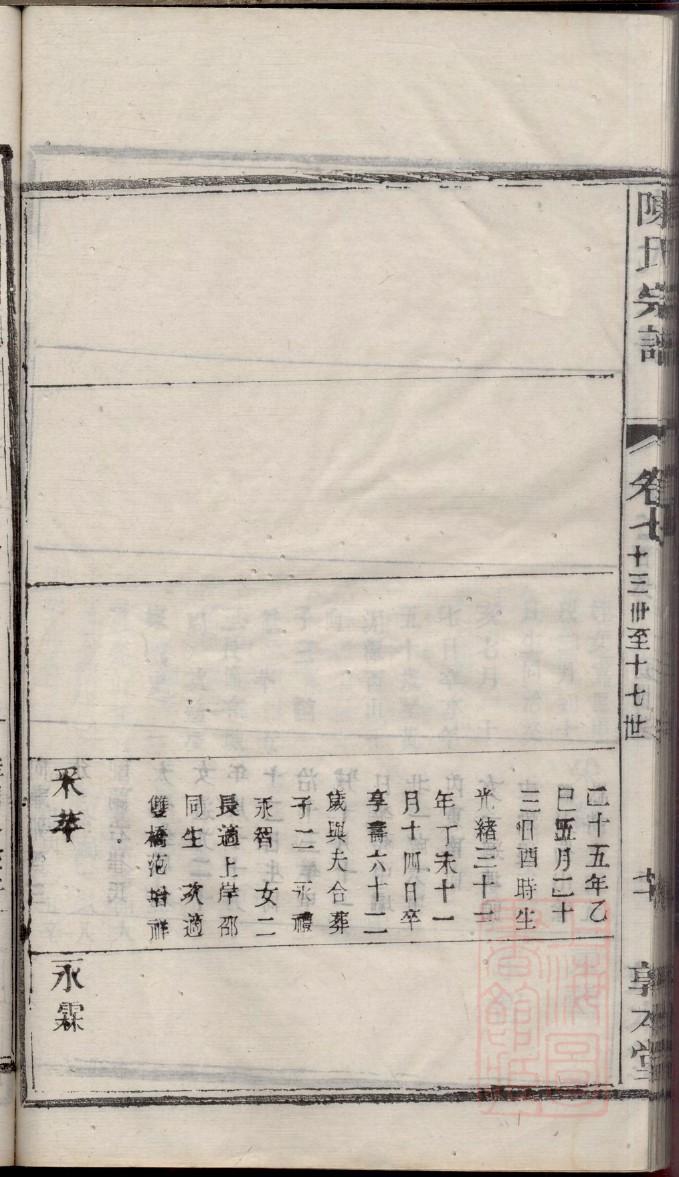 陳氏宗譜
卷七
十三世至十七世
敦本堂
二十五年乙
巳五月二十
三日酉時生
光緒三十三
年丁未十一
月十四日卒
享壽六十二
歲與夫合葬
子二永禮
永智 女二
長適上岸邵
同生 次適
雙橋范增祥
采苹
永霖